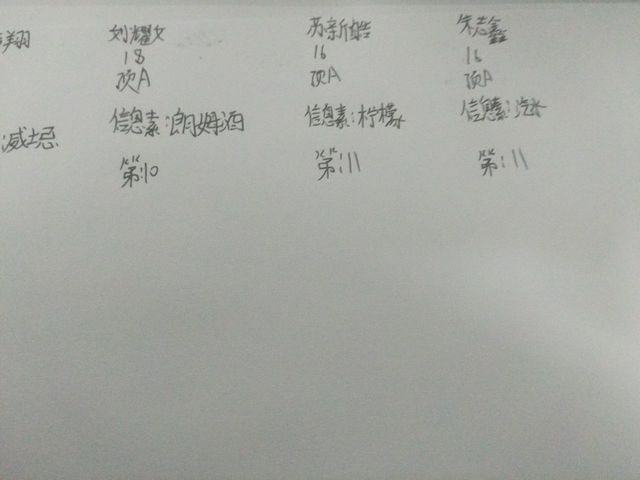 翔 刘耀文 苏新皓 朱志鑫
18 16 16
顶A 顶A 顶A
威士忌 信息素:朗姆酒 信息素:柠檬 信息素:汽水
第:10 第:11 第:11